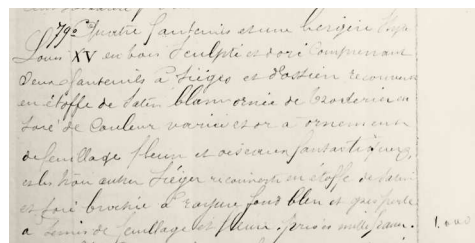 79° Quatre fauteuils et une bergère Style
Louis XV en bois sculpté et doré Comprenant
Deux fauteuils à sièges et dossiers recouverts
en étoffe de Satin blanc ornée de broderies en
soie de Couleur variée et or à ornements
de feuillage fleurs et oiseaux fantastiques,
et les trois autres sièges recouverts en étoffe de Satin
et soie brochée à rayures fond bleu et gris perle
à Semis de feuillage et fleurs. prisés mille francs.
1.000